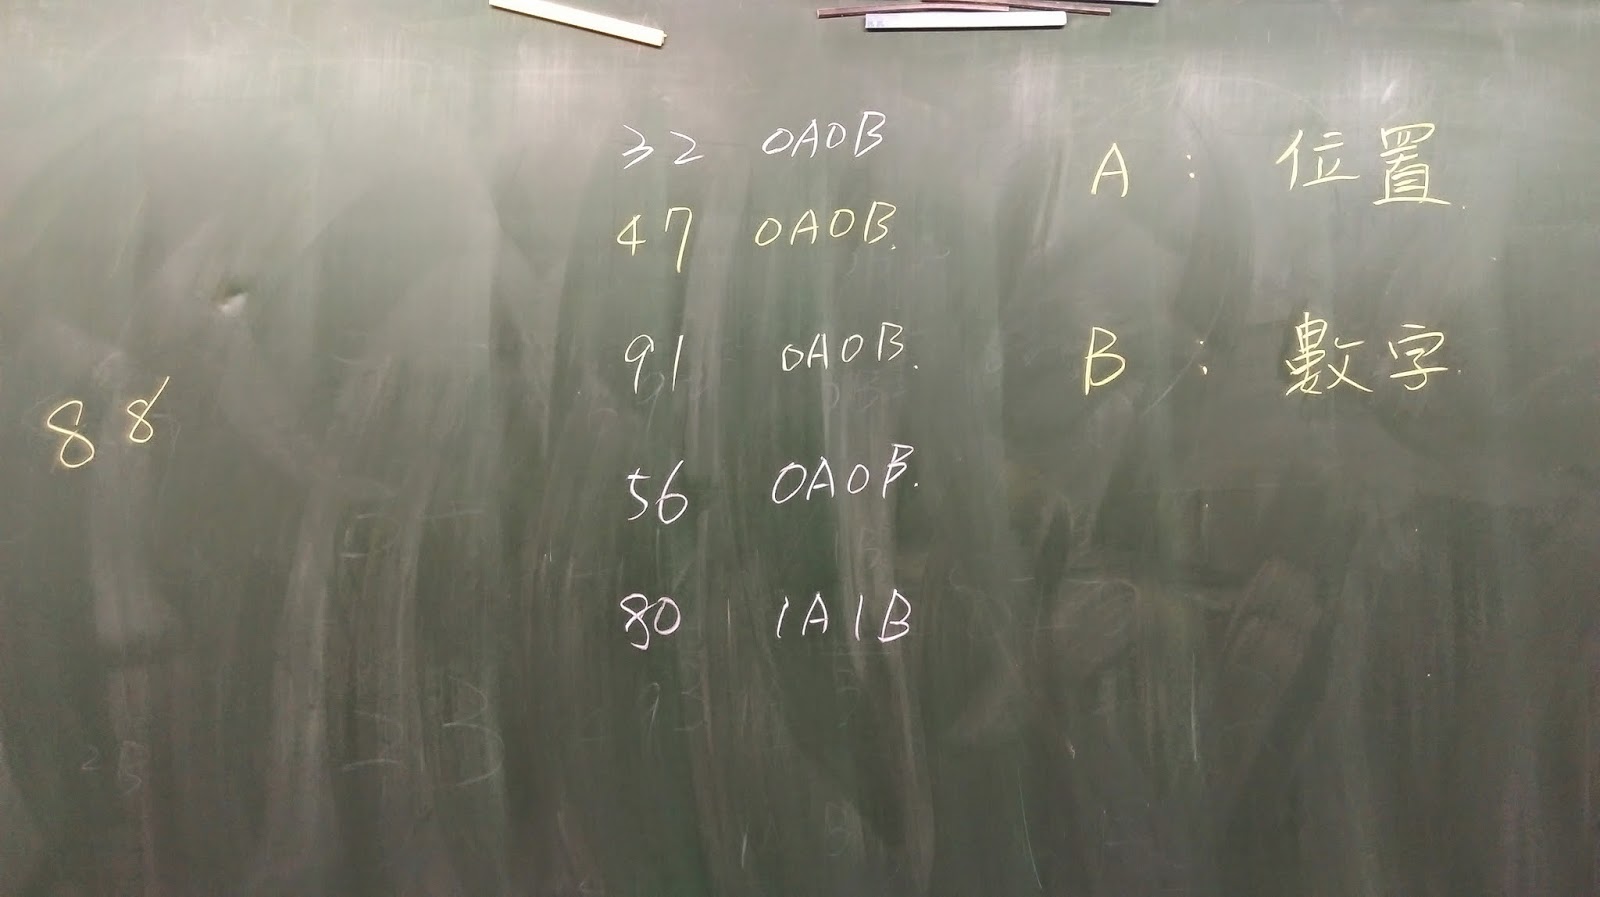 32 0A0B
47 0A0B.
91 0A0B.
56 0A0B.
80 1A1B
88
A : 位置.
B : 數字.